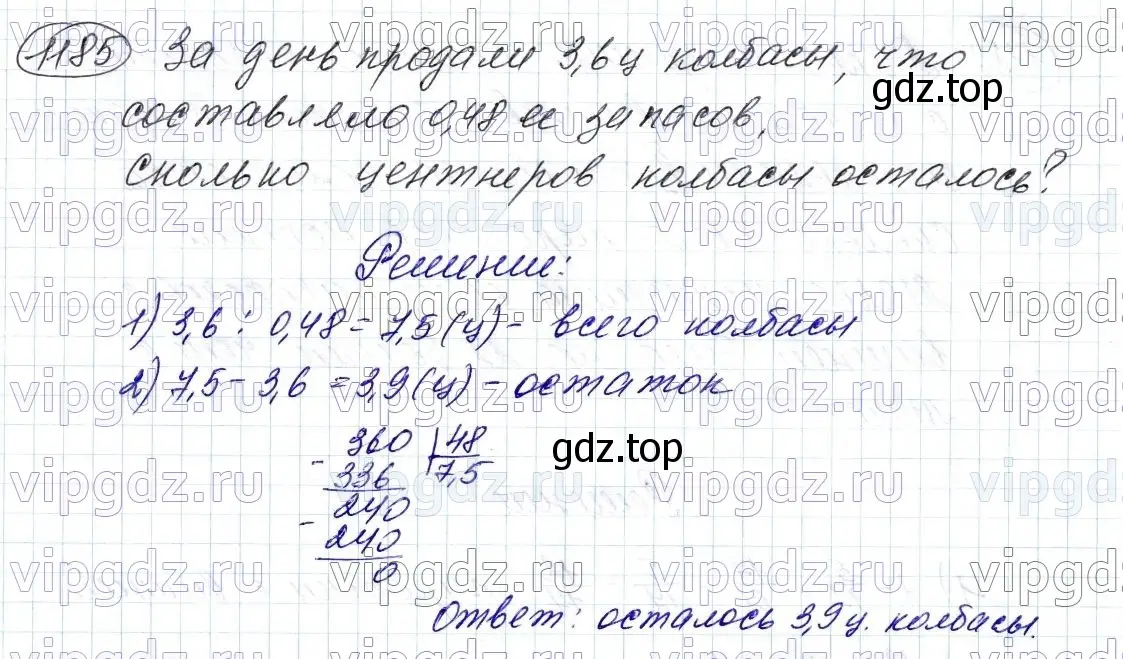 1185 За день продали 3,6 ц колбасы, что
gdz.top
составляло 0,48 ее запасов.
Сколько центнеров колбасы осталось?
Решение:
1) 3,6 : 0,48 = 7,5 (ц) - всего колбасы
2) 7,5 - 3,6 = 3,9 (ц) - остаток
- 360 | 48
336 7,5
gdz.top
- 240
240
0
Ответ: осталось 3,9 ц. колбасы.
vipgdz.ru